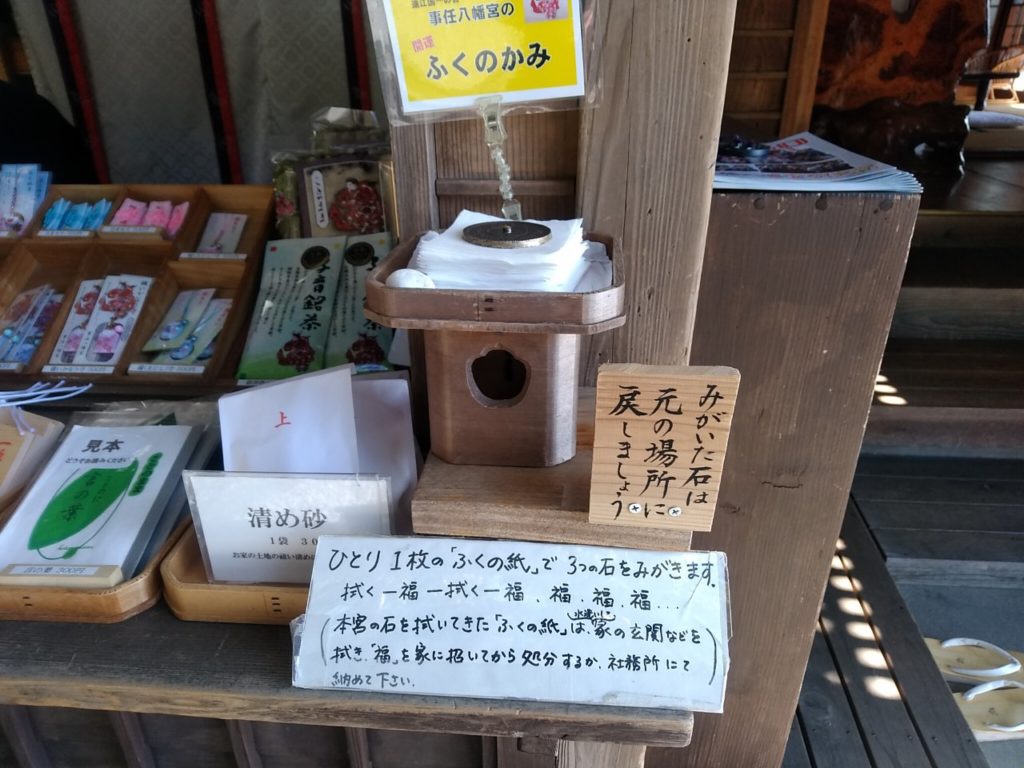 事任八幡宮の
開運
ふくのかみ
みがいた石は
元の場所に
戻しましょう
上
見本
どうぞお読みください
言の葉
言の葉 300円
清め砂
1袋 30
お家の土地の祓い清め
ひとり1枚の「ふくの紙」で3つの石をみがきます。
拭く―福―拭く―福、福、福、福...
水洗いし
(本宮の石を拭いてきた「ふくの紙」は、家の玄関などを
拭き、「福」を家に招いてから処分するか、社務所にて
納めて下さい。)